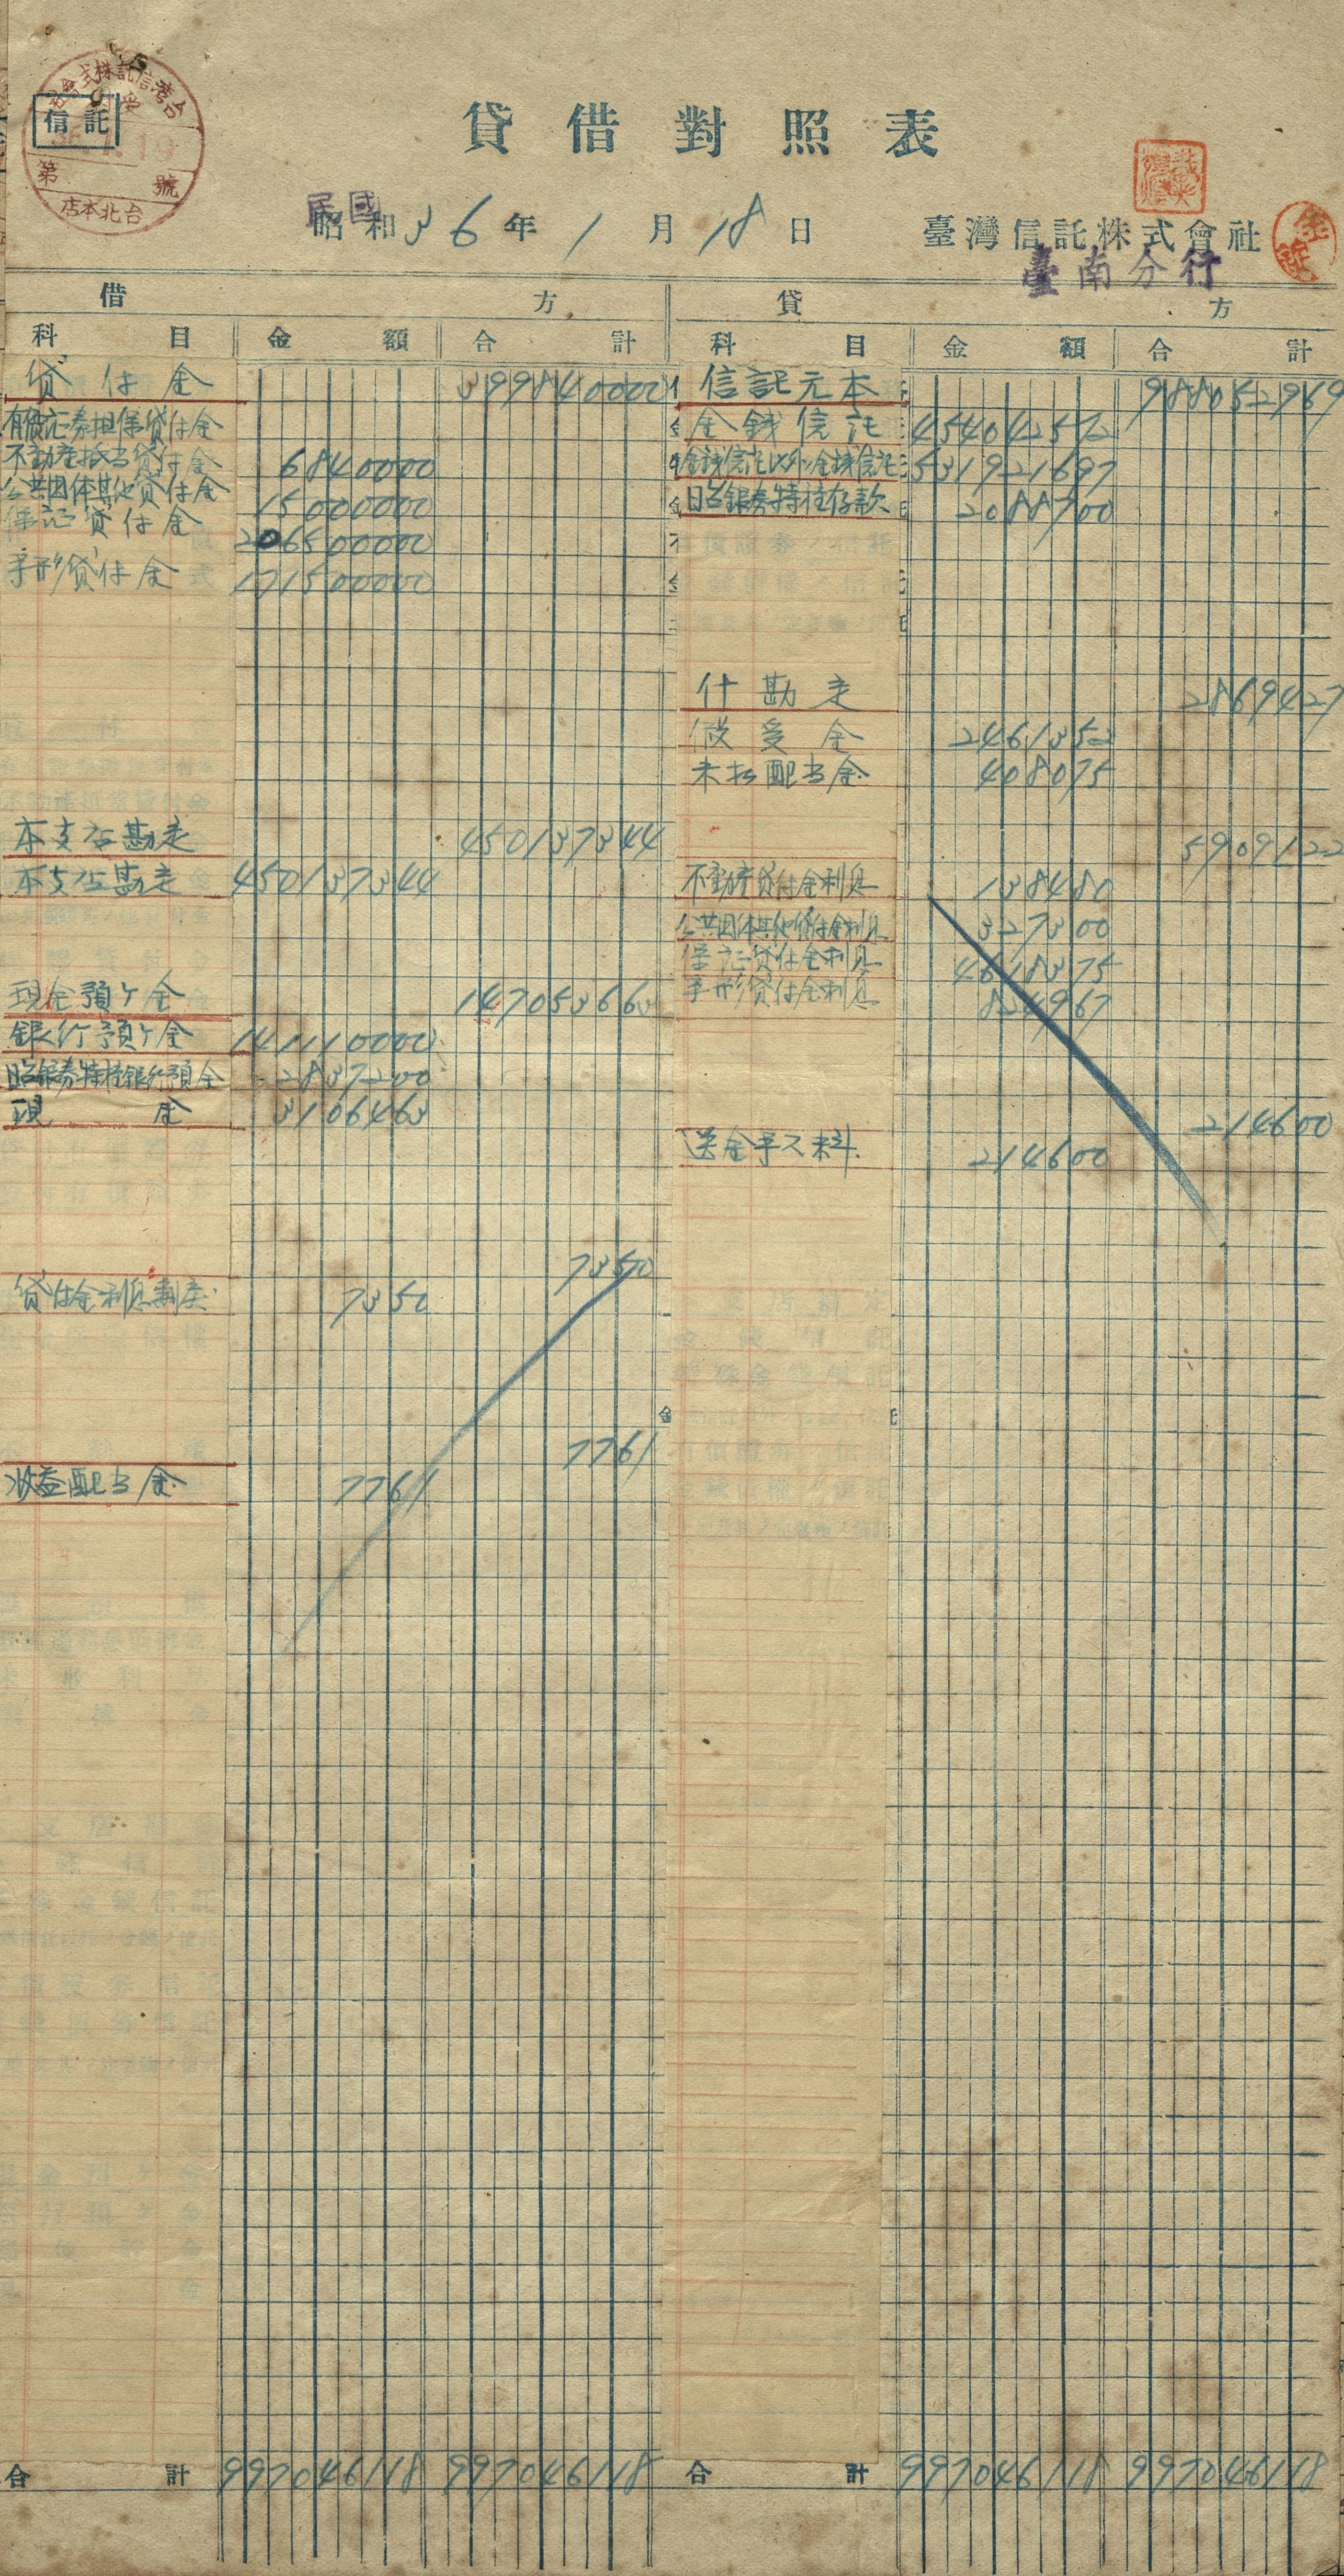 台灣信託株式會社
信託
第 號
台北本店
貸借對照表
民國
昭和36年1月18日
臺灣信託株式會社
臺南分行
借 方 貸 方
科目 金額 合計 科目 金額 合計
貸付金 399840000 信託元本 988052969
有價証券担保貸付金 金錢信託 454042572
不動産抵当貸付金 6840000 金錢信託以外ノ金錢信託 531921697
公共団体其他貸付金 15000000 日台銀券特種存款 2088700
保証貸付金 206500000
手形貸付金 171500000
什勘定 2869427
假受金 2461352
未払配当金 408075
本支店勘定 450137344 5909122
本支店勘定 450137344 不動産貸付金利息 138480
公共団体其他貸付金利息 327300
保証貸付金利息 4618375
現金預ケ金 147053663 手形貸付金利息 824967
銀行預ケ金 141110000
日台銀券特種銀行預金 2837200
現金 3106463 214600
送金手入料 214600
7350
貸付金利息割戻 7350
7761
收益配当金 7761
合計 997046118 997046118 合計 997046118 997046118